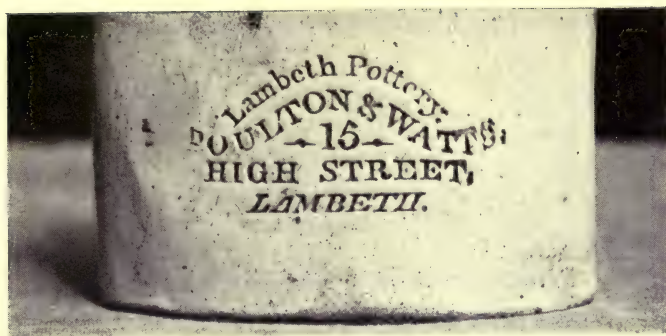 Lambeth Pottery:
DOULTON & WATTS:
15
HIGH STREET,
LAMBETH.